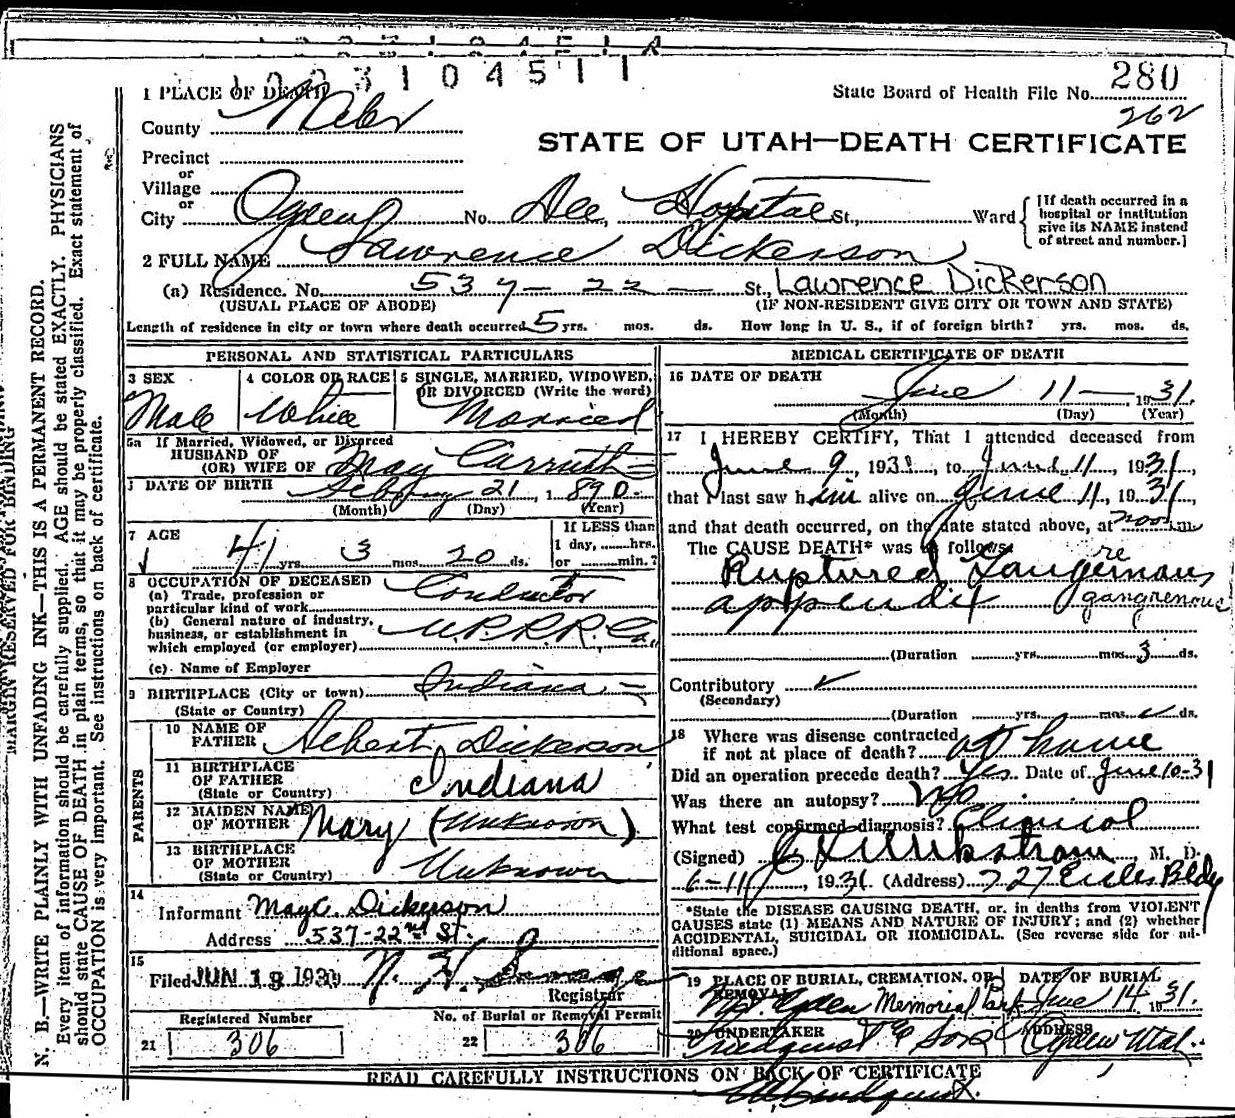 1 0 4 5 1 1
280
1 PLACE OF DEATH
State Board of Health File No.
262
County Weber
STATE OF UTAH—DEATH CERTIFICATE
Precinct
or
Village
or
City Ogden No. Dee Hospital St., Ward
[If death occurred in a hospital or institution give its NAME instead of street and number.]
2 FULL NAME Lawrence Dickerson
(a) Residence. No. 537 - 22 — St. Lawrence Dickerson
(USUAL PLACE OF ABODE) (IF NON-RESIDENT GIVE CITY OR TOWN AND STATE)
Length of residence in city or town where death occurred 5 yrs. mos. ds. How long in U. S., if of foreign birth? yrs. mos. ds.
PERSONAL AND STATISTICAL PARTICULARS
3 SEX
Male
4 COLOR OR RACE
White
5 SINGLE, MARRIED, WIDOWED, OR DIVORCED (Write the word)
Married
5a If Married, Widowed, or Divorced
HUSBAND OF
(OR) WIFE OF May Carruth
DATE OF BIRTH 21, 1890
(Month) (Day) (Year)
7 AGE
41 yrs. 3 mos. 20 ds.
If LESS than
1 day, ......hrs.
or ......min.?
8 OCCUPATION OF DECEASED
(a) Trade, profession or
particular kind of work Conductor
(b) General nature of industry,
business, or establishment in
which employed (or employer) U.P.R.R. Co.
(c) Name of Employer
9 BIRTHPLACE (City or town) Indiana
(State or Country)
PARENTS
10 NAME OF
FATHER Albert Dickerson
11 BIRTHPLACE
OF FATHER
(State or Country) Indiana
12 MAIDEN NAME
OF MOTHER Mary (Unknown)
13 BIRTHPLACE
OF MOTHER
(State or Country) Unknown
14
Informant May C. Dickerson
Address 537-22nd St.
15
Filed JUN 18 193
Registrar
Registered Number
21 306
No. of Burial or Removal Permit
22 306
MEDICAL CERTIFICATE OF DEATH
16 DATE OF DEATH
June 11 — 1931.
(Month) (Day) (Year)
17 I HEREBY CERTIFY, That I attended deceased from
June 9, 1931, to June 11, 1931,
that I last saw him alive on June 11, 1931,
and that death occurred, on the date stated above, at noon m
The CAUSE DEATH* was as follows:
re
Ruptured Gangernous
appendix gangrenous
(Duration yrs. mos. 3 ds.
Contributory
(Secondary)
(Duration yrs. mos. ds.
18 Where was disease contracted
if not at place of death? at home
Did an operation precede death? Yes. Date of June 10-31
Was there an autopsy? No
What test confirmed diagnosis? Clinical
(Signed) M. D.
6-11, 1931. (Address) 727 Eccles Bldg
*State the DISEASE CAUSING DEATH, or, in deaths from VIOLENT
CAUSES state (1) MEANS AND NATURE OF INJURY; and (2) whether
ACCIDENTAL, SUICIDAL OR HOMICIDAL. (See reverse side for additional space.)
19 PLACE OF BURIAL, CREMATION, OR REMOVAL
Ogden Memorial Park
DATE OF BURIAL
June 14 1931.
20 UNDERTAKER
Lindquist & Sons
ADDRESS
Ogden Utah.
READ CAREFULLY INSTRUCTIONS ON BACK OF CERTIFICATE
Lindquist.
MARGIN RESERVED FOR BINDING
N. B.—WRITE PLAINLY WITH UNFADING INK—THIS IS A PERMANENT RECORD.
Every item of information should be carefully supplied. AGE should be stated EXACTLY. PHYSICIANS
should state CAUSE OF DEATH in plain terms, so that it may be properly classified. Exact statement of
OCCUPATION is very important. See instructions on back of certificate.